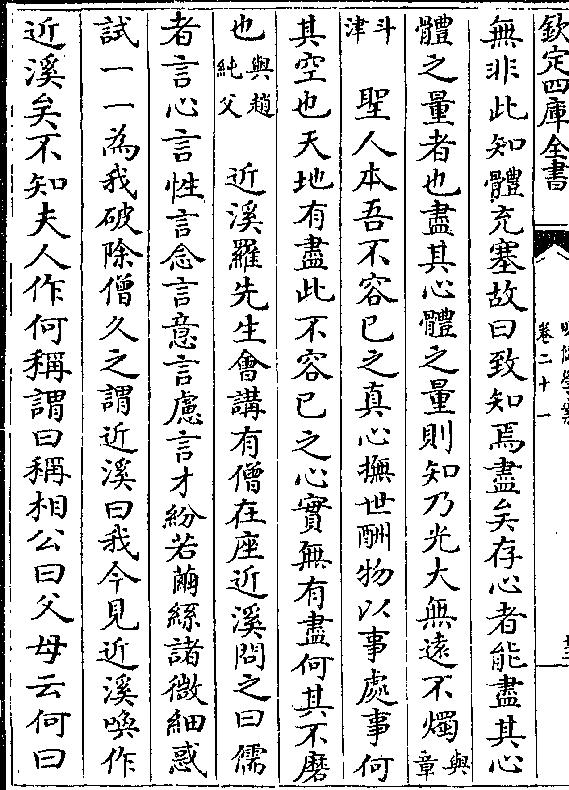 欽定四庫全書
卷二十一
無非此知體充塞故曰致知焉盡矣存心者能盡其心
體之量者也盡其心體之量則知乃光大無遠不燭與章
斗津　聖人本吾不容已之真心撫世酬物以事處事何
其空也天地有盡此不容已之心實無有盡何其不磨
也與趙純父　近溪羅先生會講有僧在座近溪問之曰儒
者言心言性言念言意言慮言才紛若繭絲諸微細惑
試一一為我破除僧久之謂近溪曰我今見近溪喚作
近溪矣不知夫人作何稱謂曰稱相公曰父母云何曰